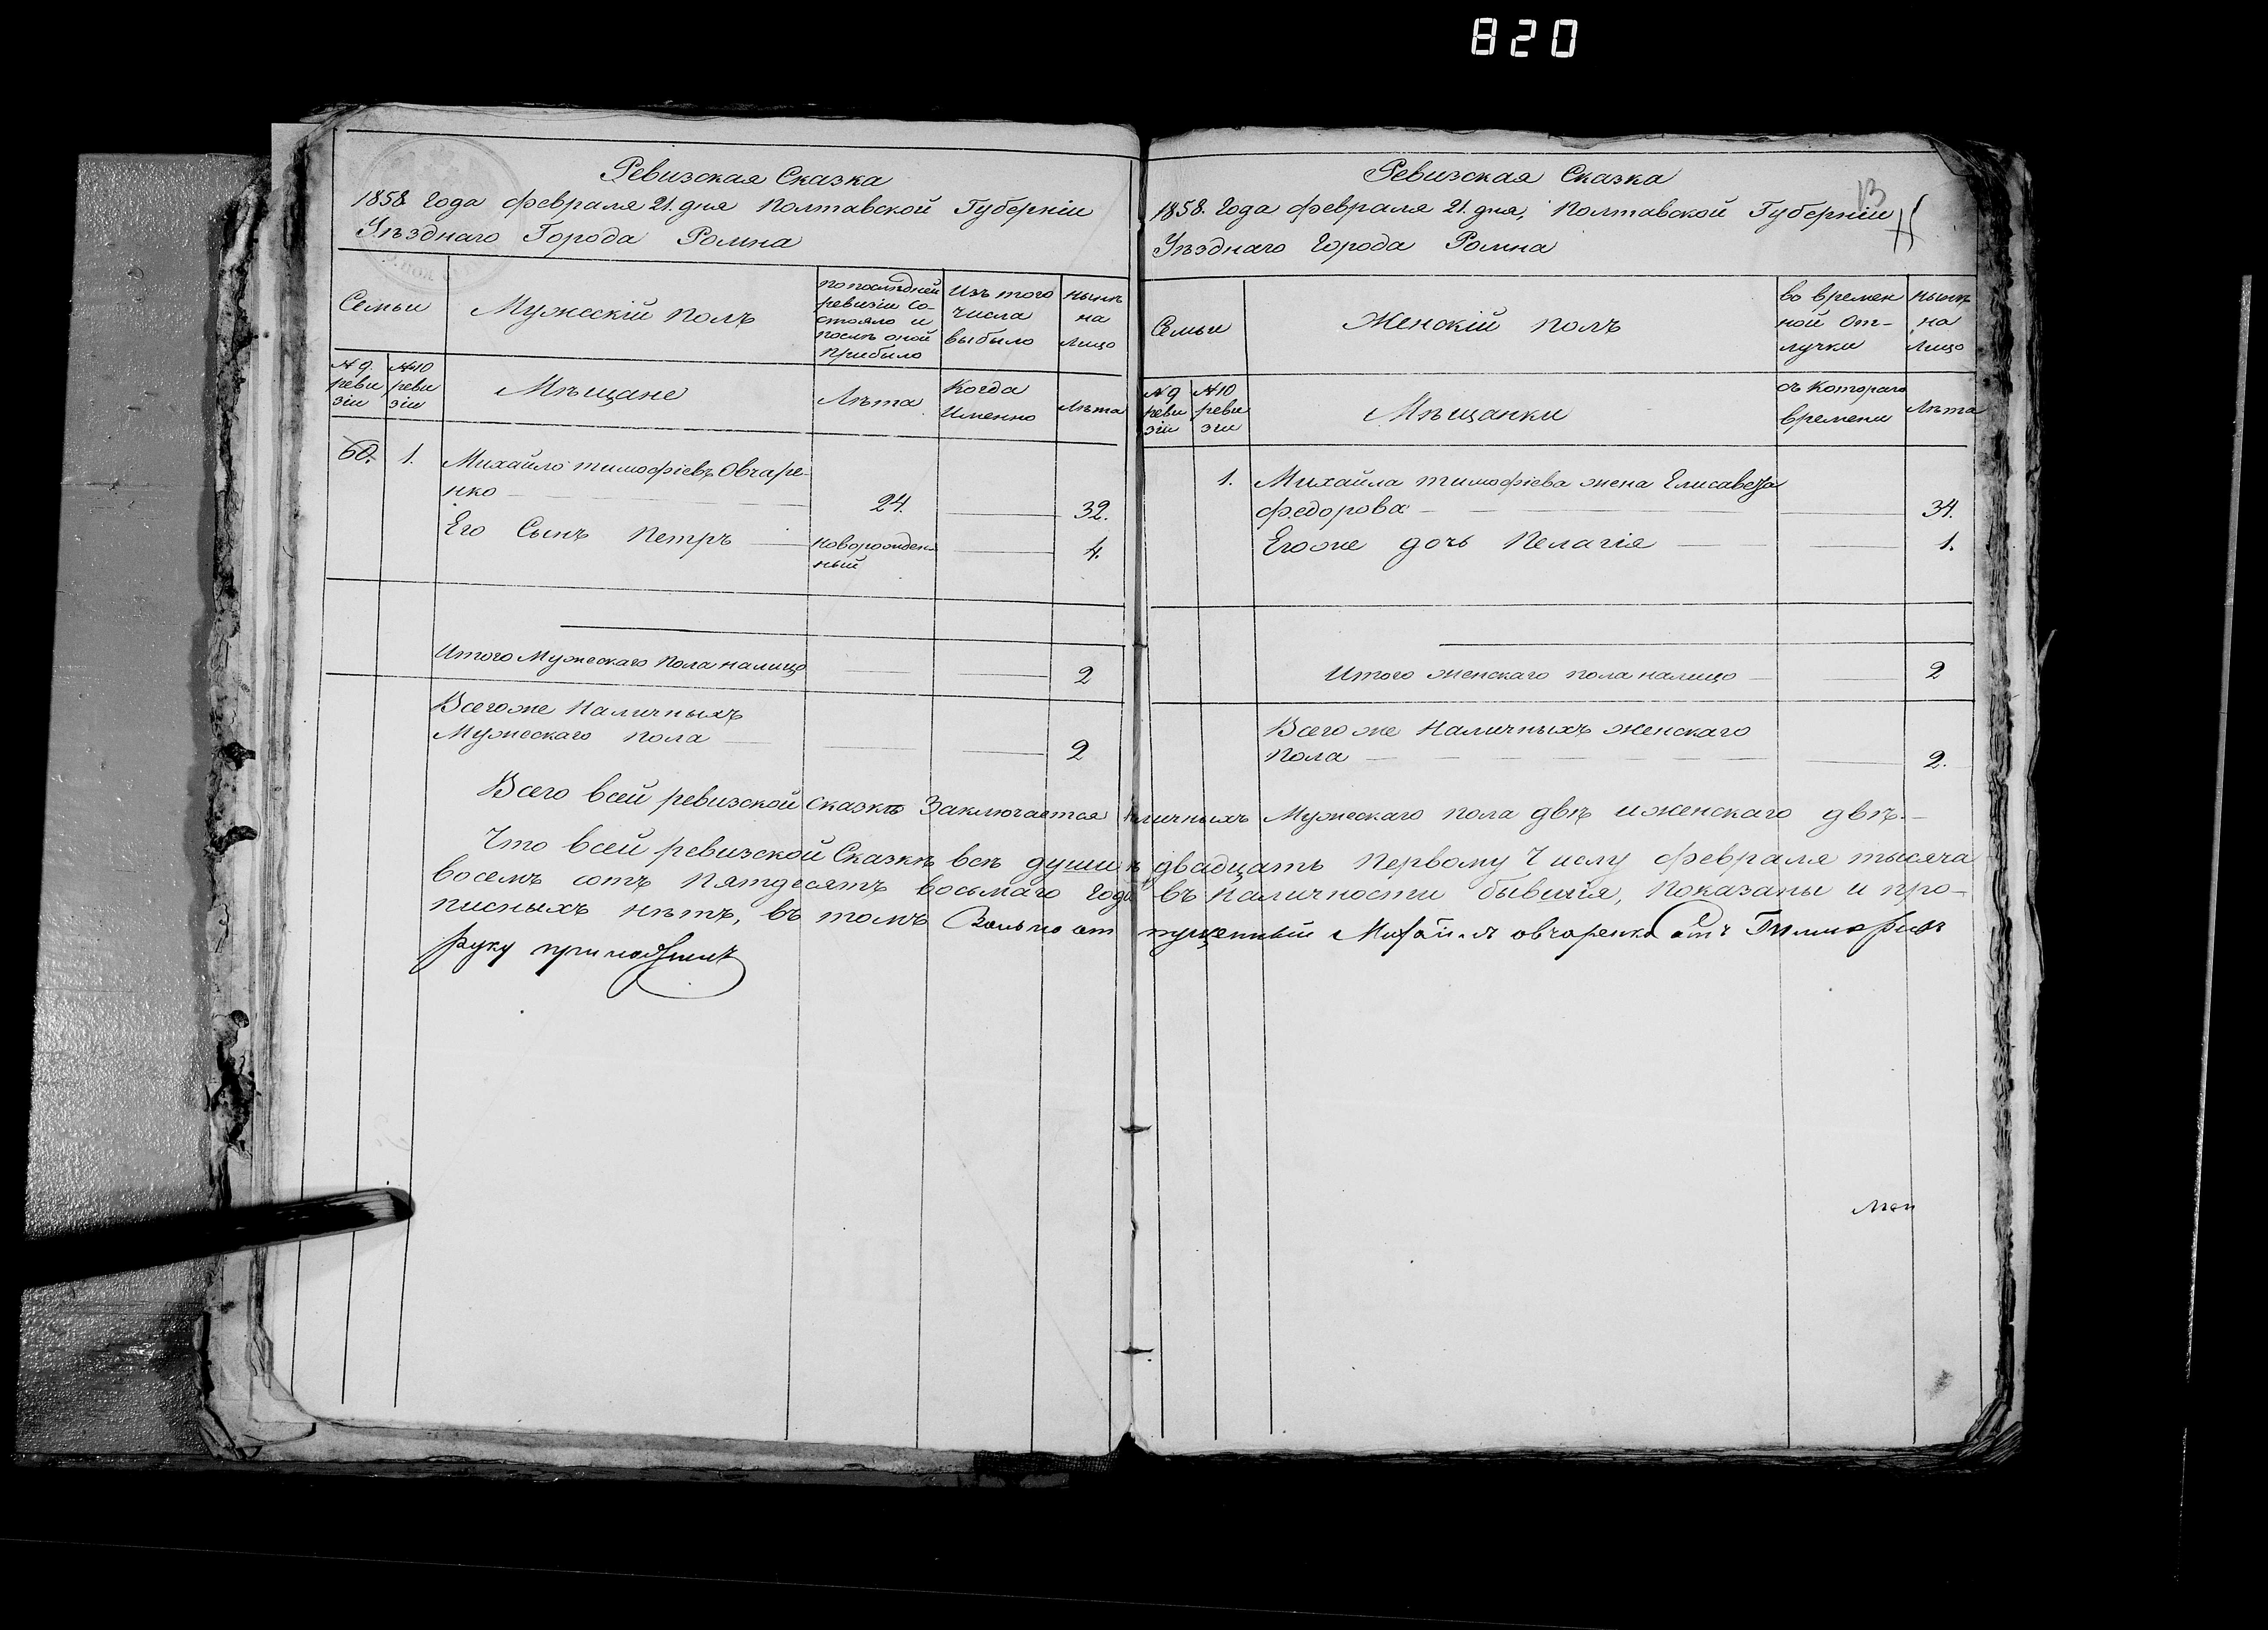 820
Ревизская Сказка
1858. Года февраля 21. дня Полтавской Губерніи
Уѣзднаго Города Ромна
Семьи
Мужескій полъ
по последней ревизіи Со-
стояло и
послѣ оной
прибыло
Изъ того
числа
выбыло
нынѣ
на
лицо
№ 9.
реви
зіи
№ 10
реви
зіи
Мѣщане
Лѣта
Когда
Именно
Лѣта
60. 1. Михайло тимофіевъ Овчаре-
нко 24. 32.
Его Сынъ Петръ новорожден-
ный 4.
Итого Мужескаго Пола налицо 2
Всегоже Наличныхъ
Мужескаго пола 2
Ревизская Сказка
13
1858. Года февраля 21. дня, Полтавской Губерніи
Уѣзднаго Города Ромна
Семьи
Женскій полъ
во времен
ной От-
лучки
нынѣ
на
Лицо
№ 9
реви
зіи
№ 10
реви
зіи
Мѣщанки
съ Котораго
времени
Лѣта
1. Михайла тимофіева жена Елисавета
федорова 34.
Егоже дочь Пелагія 1.
Итого женскаго пола налицо 2
Всего же Наличныхъ женскаго
Пола 2.
Всего всей ревизской сказкѣ Заключается личныхъ Мужескаго пола двѣ и женскаго двѣ.
Что всей ревизской Сказкѣ всѣ души к двадцать Первому Числу февраля тысяча
восемъ сотъ Пятдесятъ восьмаго Года въ Наличности бывшія, Показаны и про-
писныхъ нѣтъ, въ томъ Вольно от пущенный Михайла овчаренко
Руку приложилъ